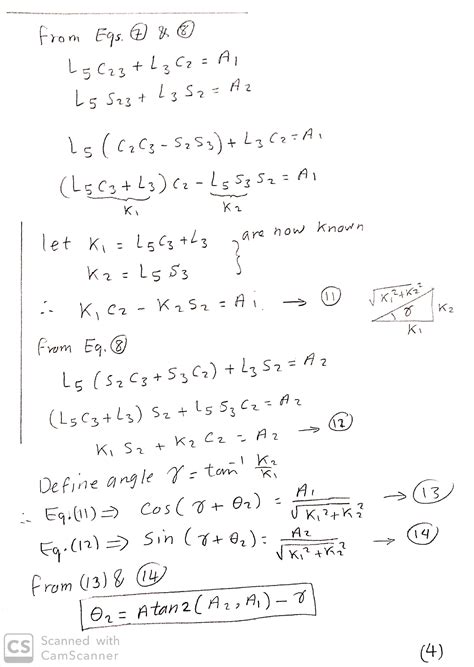 from Eqs. ⑦ & ⑧
L₅ C₂₃ + L₃ C₂ = A₁
L₅ S₂₃ + L₃ S₂ = A₂
L₅ ( C₂C₃ - S₂S₃ ) + L₃ C₂ = A₁
(L₅C₃ + L₃) C₂ - L₅ S₃ S₂ = A₁
K₁ K₂
let K₁ = L₅C₃ + L₃ } are now known
K₂ = L₅ S₃
∴ K₁ C₂ - K₂ S₂ = A₁. → ⑪
√K₁²+K₂² γ K₂
K₁
from Eq. ⑧
L₅ (S₂ C₃ + S₃ C₂) + L₃ S₂ = A₂
(L₅C₃ + L₃) S₂ + L₅ S₃ C₂ = A₂
K₁ S₂ + K₂ C₂ = A₂ → ⑫
Define angle γ = tan⁻¹ K₂/K₁
∴ Eq.(11) ⇒ Cos(γ + θ₂) = A₁/√K₁²+K₂² → ⑬
Eq.(12) ⇒ Sin(γ + θ₂) = A₂/√K₁²+K₂² → ⑭
from (13) & ⑭
θ₂ = Atan2(A₂, A₁) - γ
(4)
CS Scanned with
CamScanner